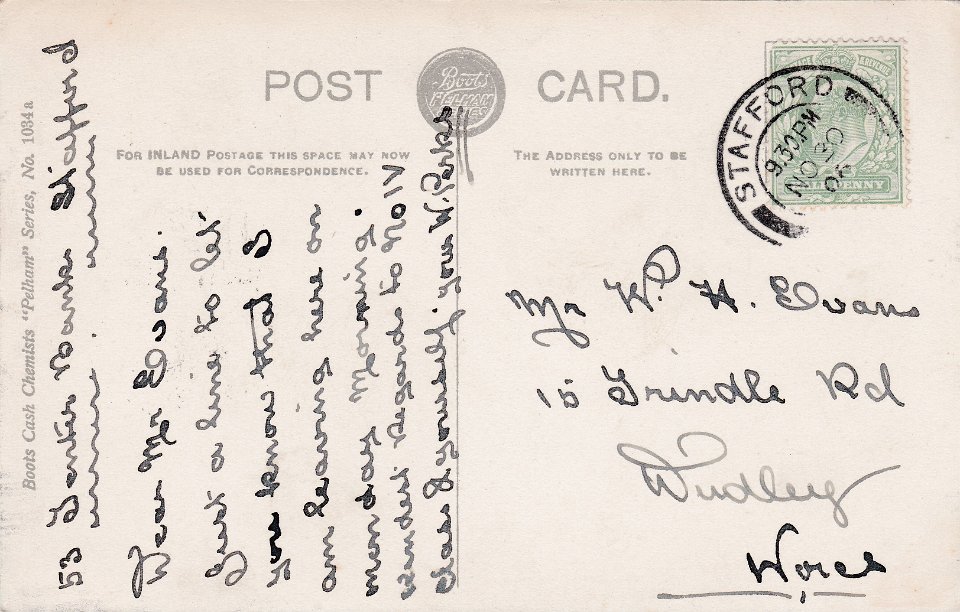 POST CARD.
Boots
PELHAM
SERIES
FOR INLAND POSTAGE THIS SPACE MAY NOW
BE USED FOR CORRESPONDENCE.
THE ADDRESS ONLY TO BE
WRITTEN HERE.
Boots Cash Chemists "Pelham" Series, No. 1034a
53 Tenter Banks Stafford
Dear Mr Evans.
Just a line to let
you know that I
am leaving here on
monday Morning.
kindest Regards to No IV
Class & yourself, your W. Perks
STAFFORD
9.30PM
NO 20
HALFPENNY
Mr W. H. Evans
15 Grindle Rd
Dudley
Worcs